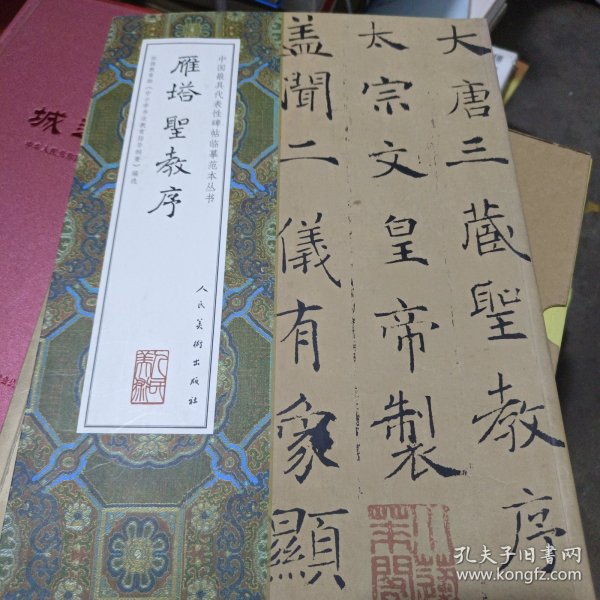 中国最具代表性碑帖临摹范本丛书
雁塔聖教序
人民美術出版社
大唐三藏聖教序
太宗文皇帝製
蓋聞二儀有象顯
孔夫子旧书网
www.kongfz.com